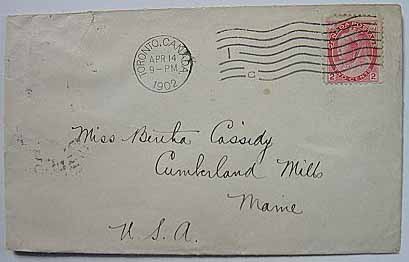 TORONTO, CANADA
APR 14
9-PM
1902
I
C
2 2
Miss Bertha Cassidy
Cumberland Mills
Maine
U. S. A.